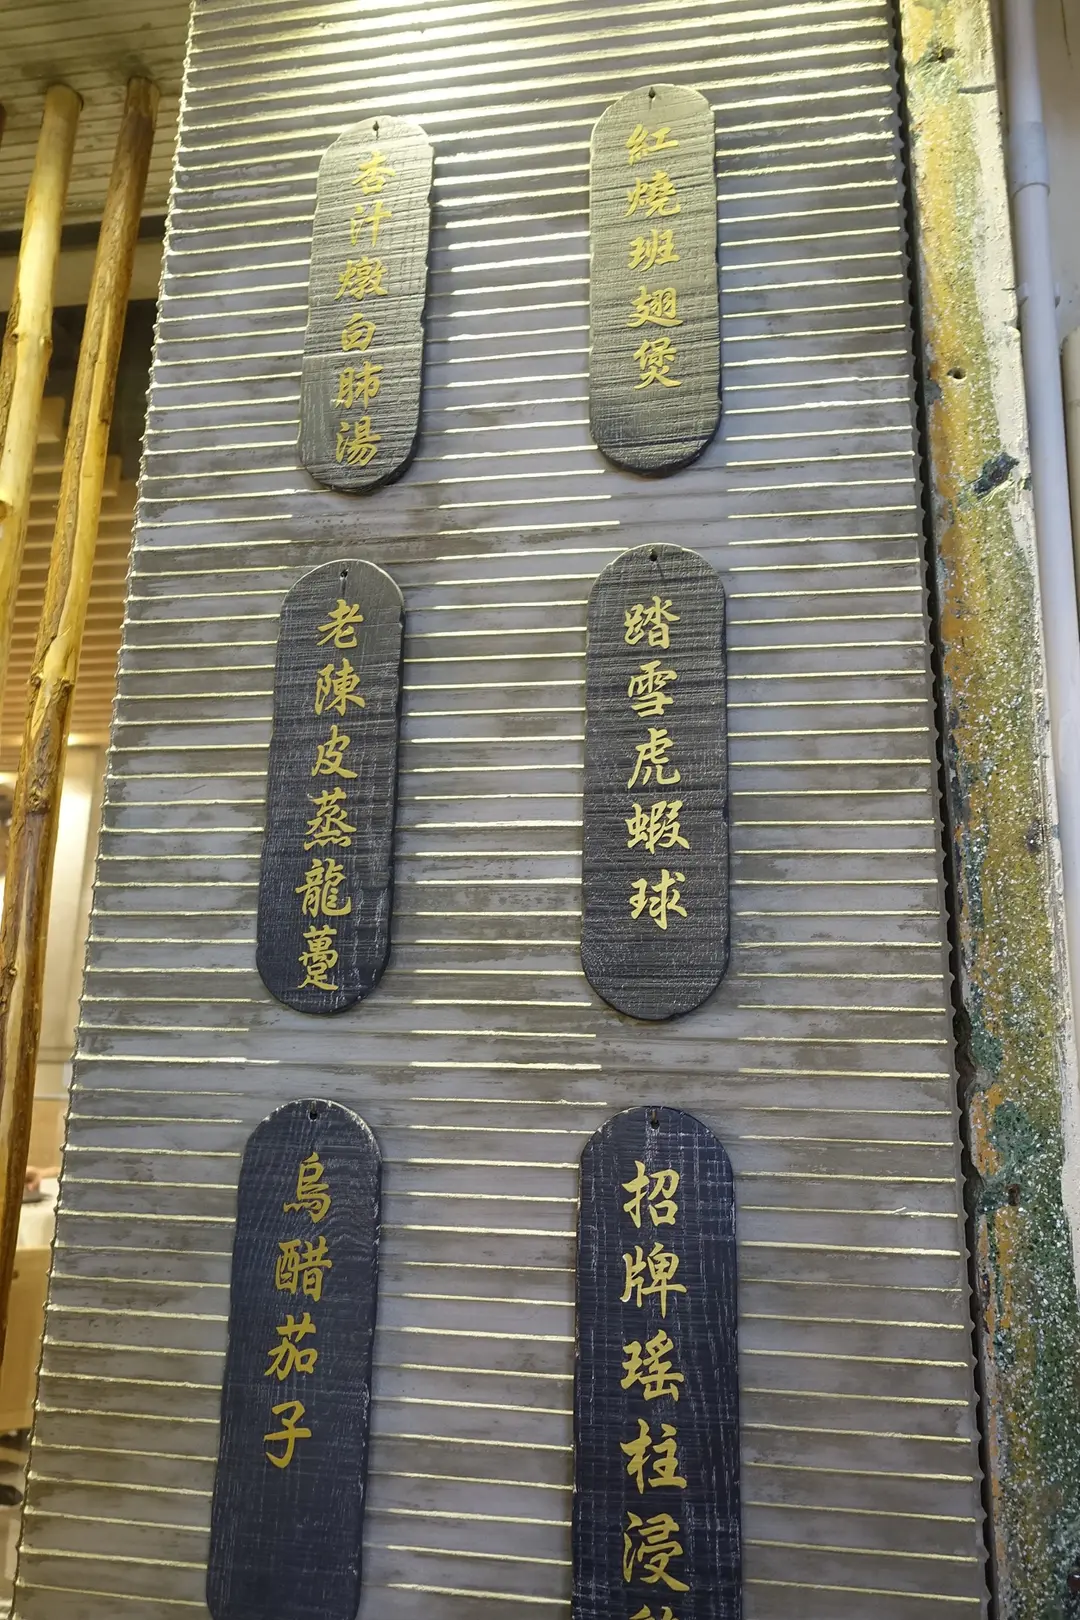 紅燒班翅煲
杏汁燉白肺湯
踏雪虎蝦球
老陳皮蒸龍躉
招牌瑶柱浸
烏醋茄子